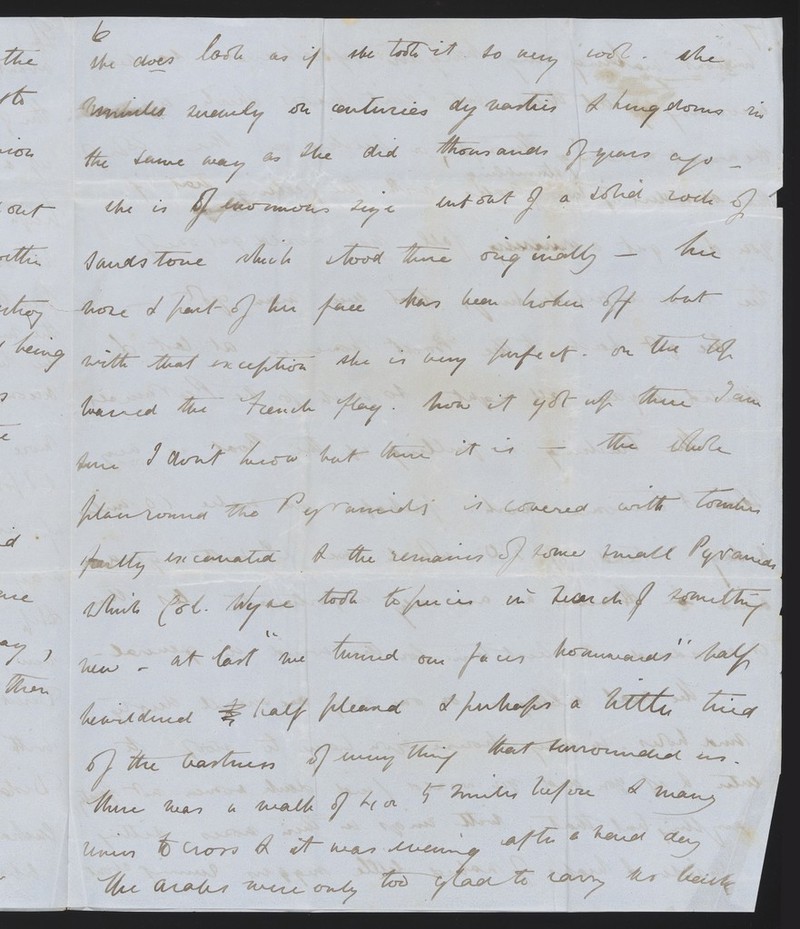 6
she does look as if she took it so very cool. she
smiles serenely on centuries dynasties & kingdoms in
the same way as she did thousands of years ago _
she is of enormous size cut out of a solid rock of
sandstone which stood there originally _ her
nose & part of her face has been broken off but
with that exception she is very perfect. on the top
waved the French flag. how it got up there I am
sure I don't know but there it is _ the whole
plain round the Pyramids is covered with tombs
partly excavated & the remains of some small Pyramids
which Col. Vyse took to pieces in search of something
new _ at last "we turned our faces homewards" half
bewildered & half pleased & perhaps a little tired
of the vastness of everything that surrounded us.
there was a walk of 4 or 5 miles before & many
rivers to cross & it was evening after a hard day
the arabs were only too glad to carry us back
the
out
within
being
then